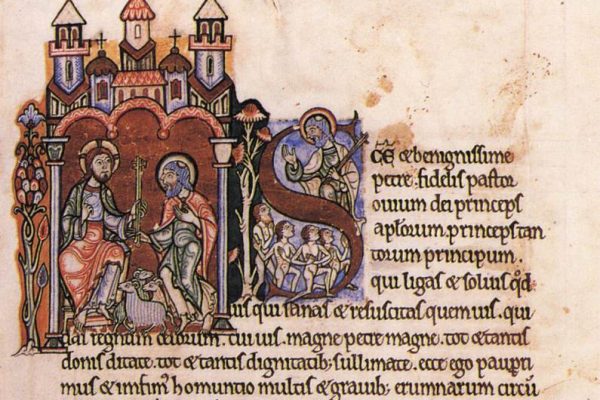 SCE & benignissime
petre. fidelis pastor
ovium dei princeps
aplorum. princeps tan
torum principum.
qui ligas & soluis qd
uis qui sanas & resuscitas quem uis. qui
das regnum celorum cui uis. magne petre magne. tot & tantis
donis ditate. tot & tantis dignitatib; sullimate. ecce ego paupri
mus & infim' homuntio multis & grauib; erumnarum circū